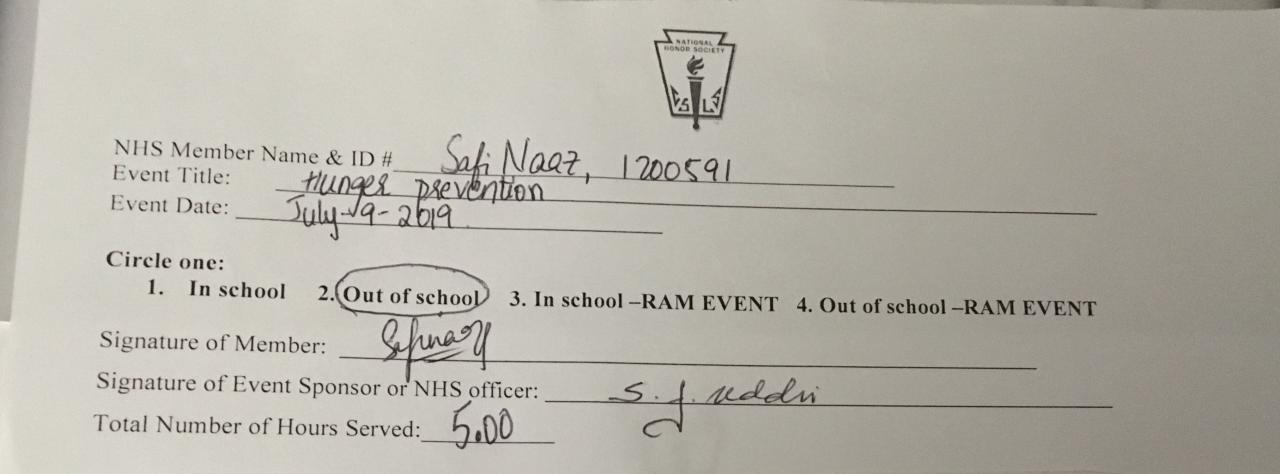 NATIONAL
HONOR SOCIETY
S L S
NHS Member Name & ID # Safi Naaz, 1200591
Event Title: Hunger prevention
Event Date: July-19-2019
Circle one:
1. In school 2. Out of school 3. In school –RAM EVENT 4. Out of school –RAM EVENT
Signature of Member:
Signature of Event Sponsor or NHS officer: S. J. reddi
Total Number of Hours Served: 5.00